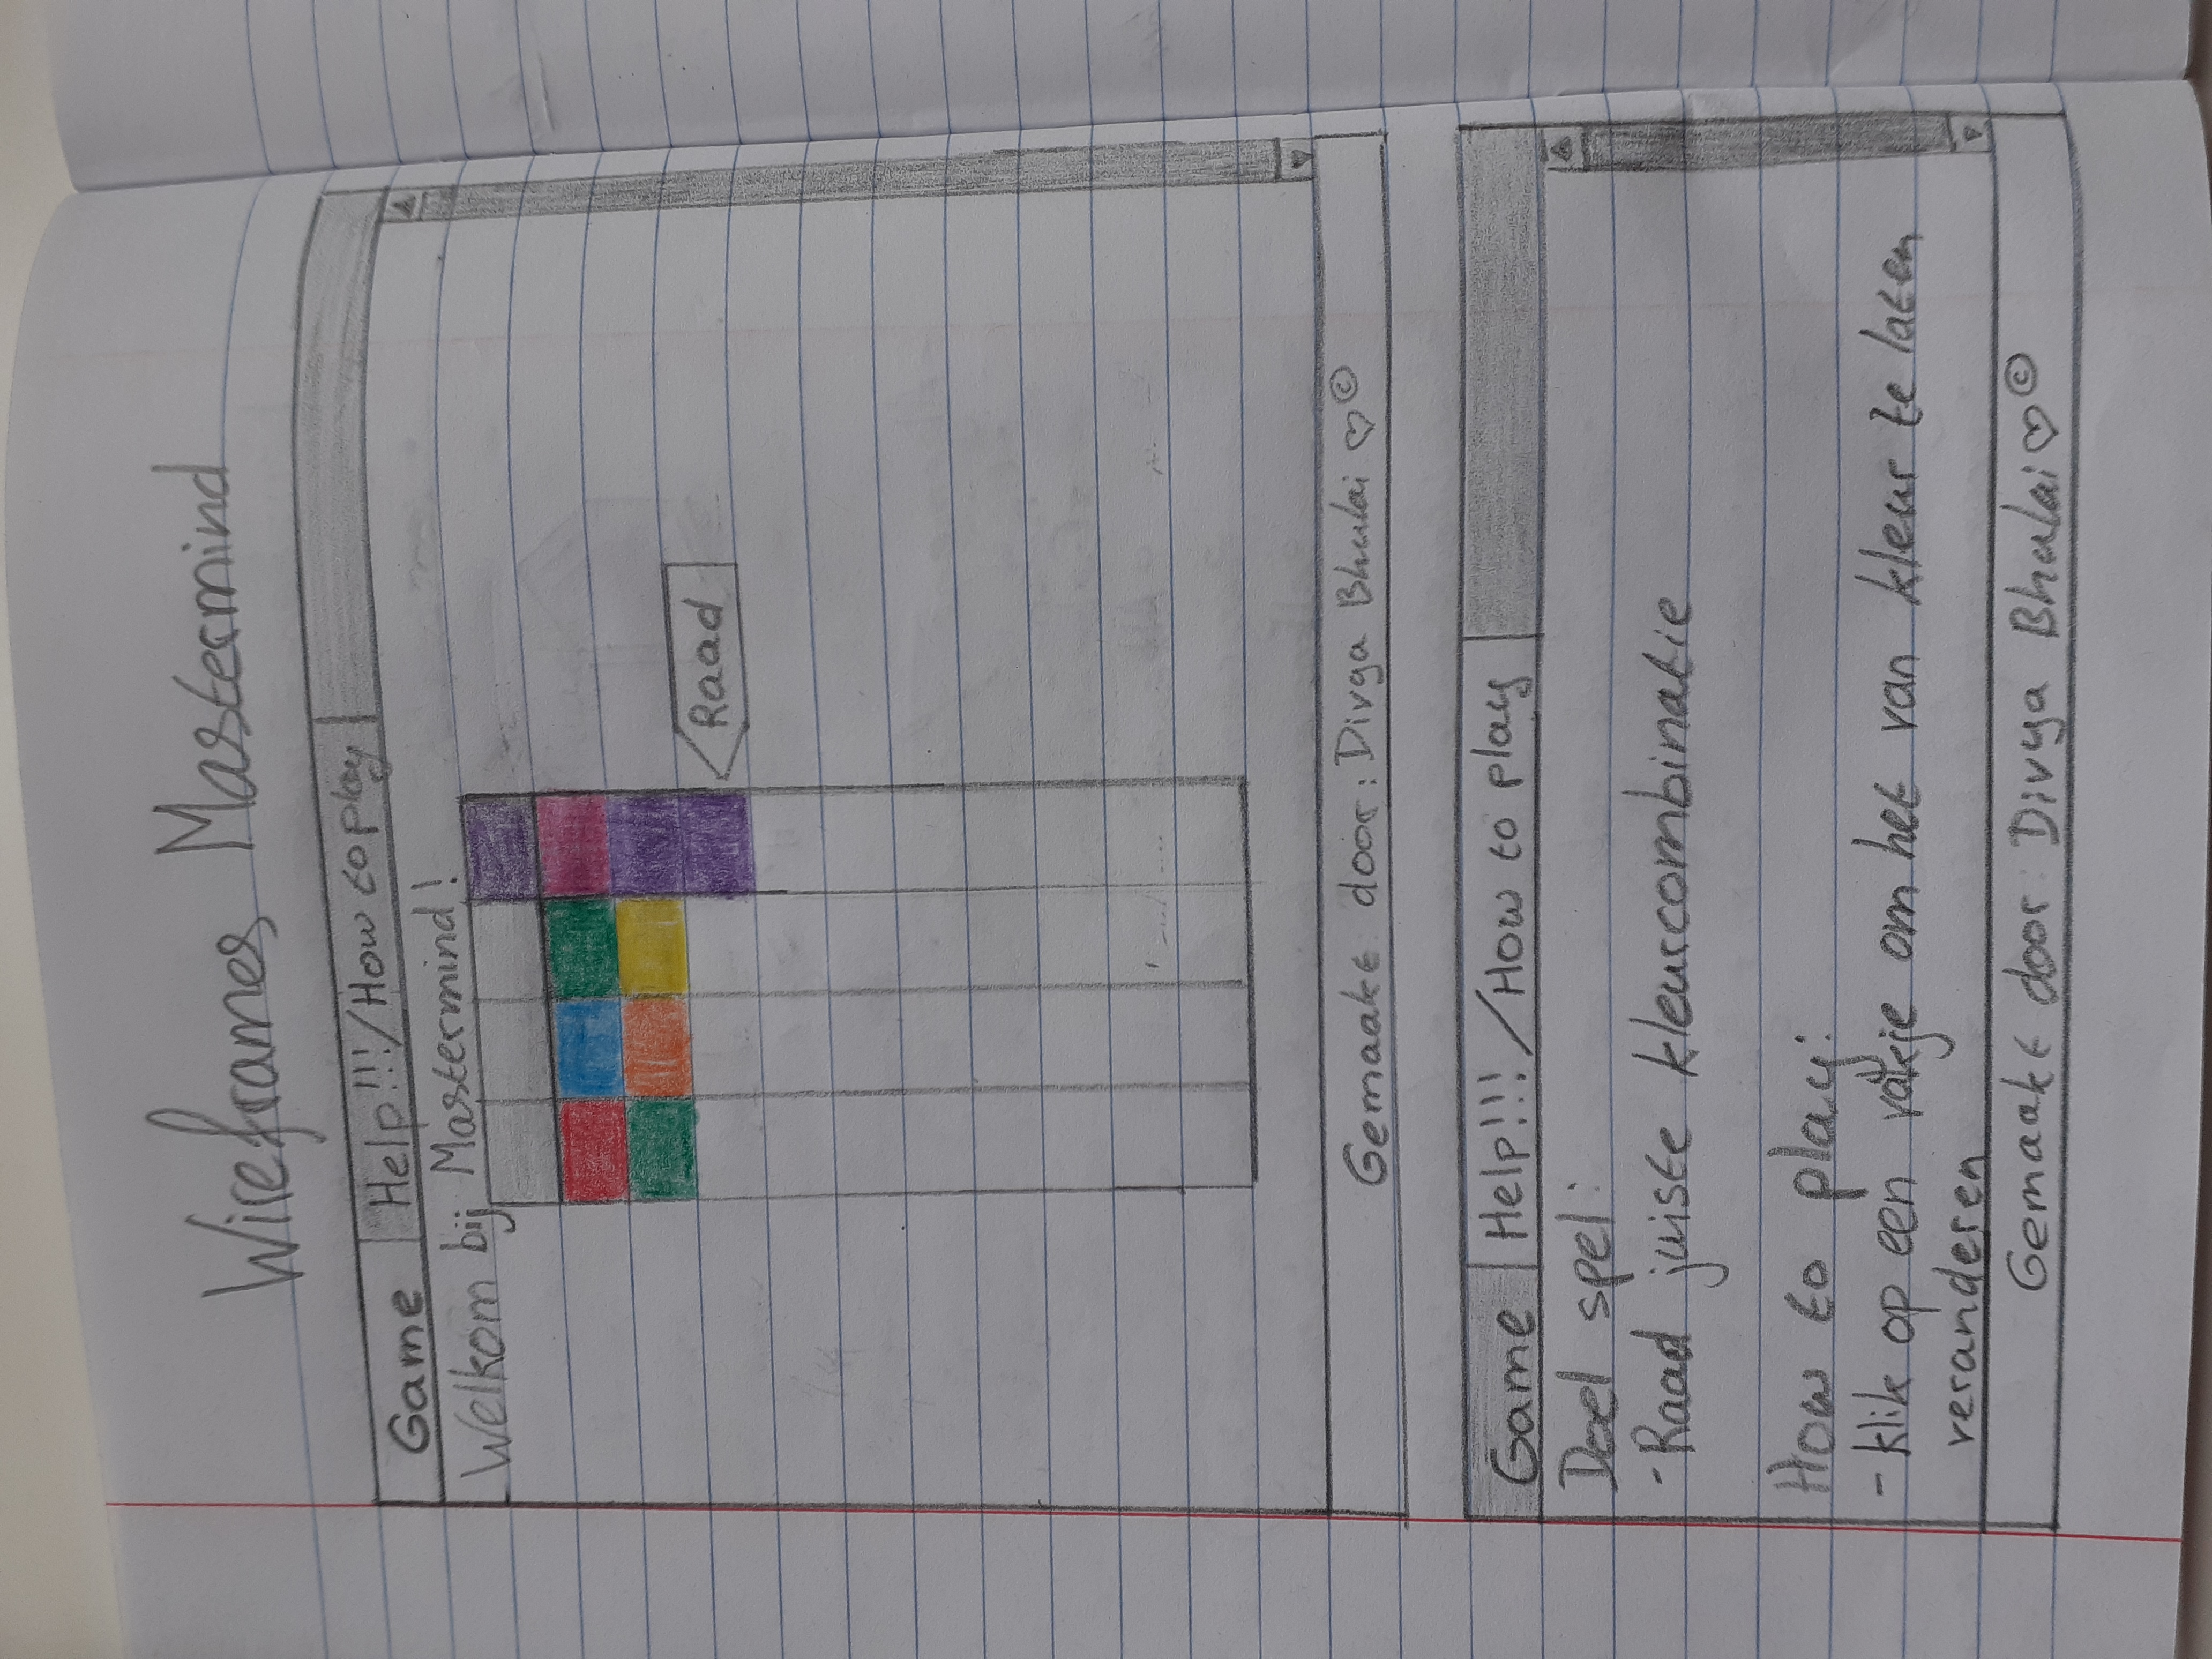 Wireframes Mastermind
Game Help!!!/How to play
Welkom bij Mastermind!
Raad
Gemaakt door: Divya Bhulai ♡©
Game Help!!!/How to play
Doel spel:
- Raad juiste kleurcombinatie
How to play:
- klik op een vakje om het van kleur te laten
veranderen
Gemaakt door: Divya Bhulai ♡©